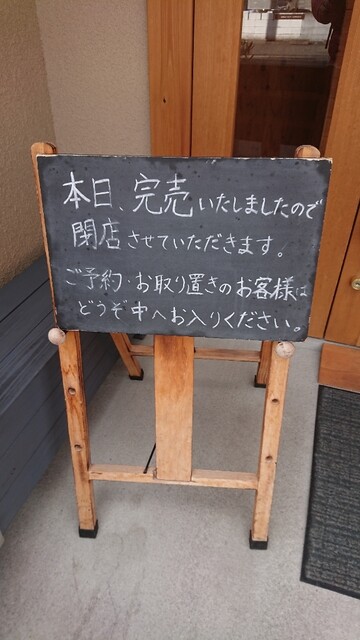 本日、完売いたしましたので
閉店させていただきます。
ご予約・お取り置きのお客様は
どうぞ中へお入りください。